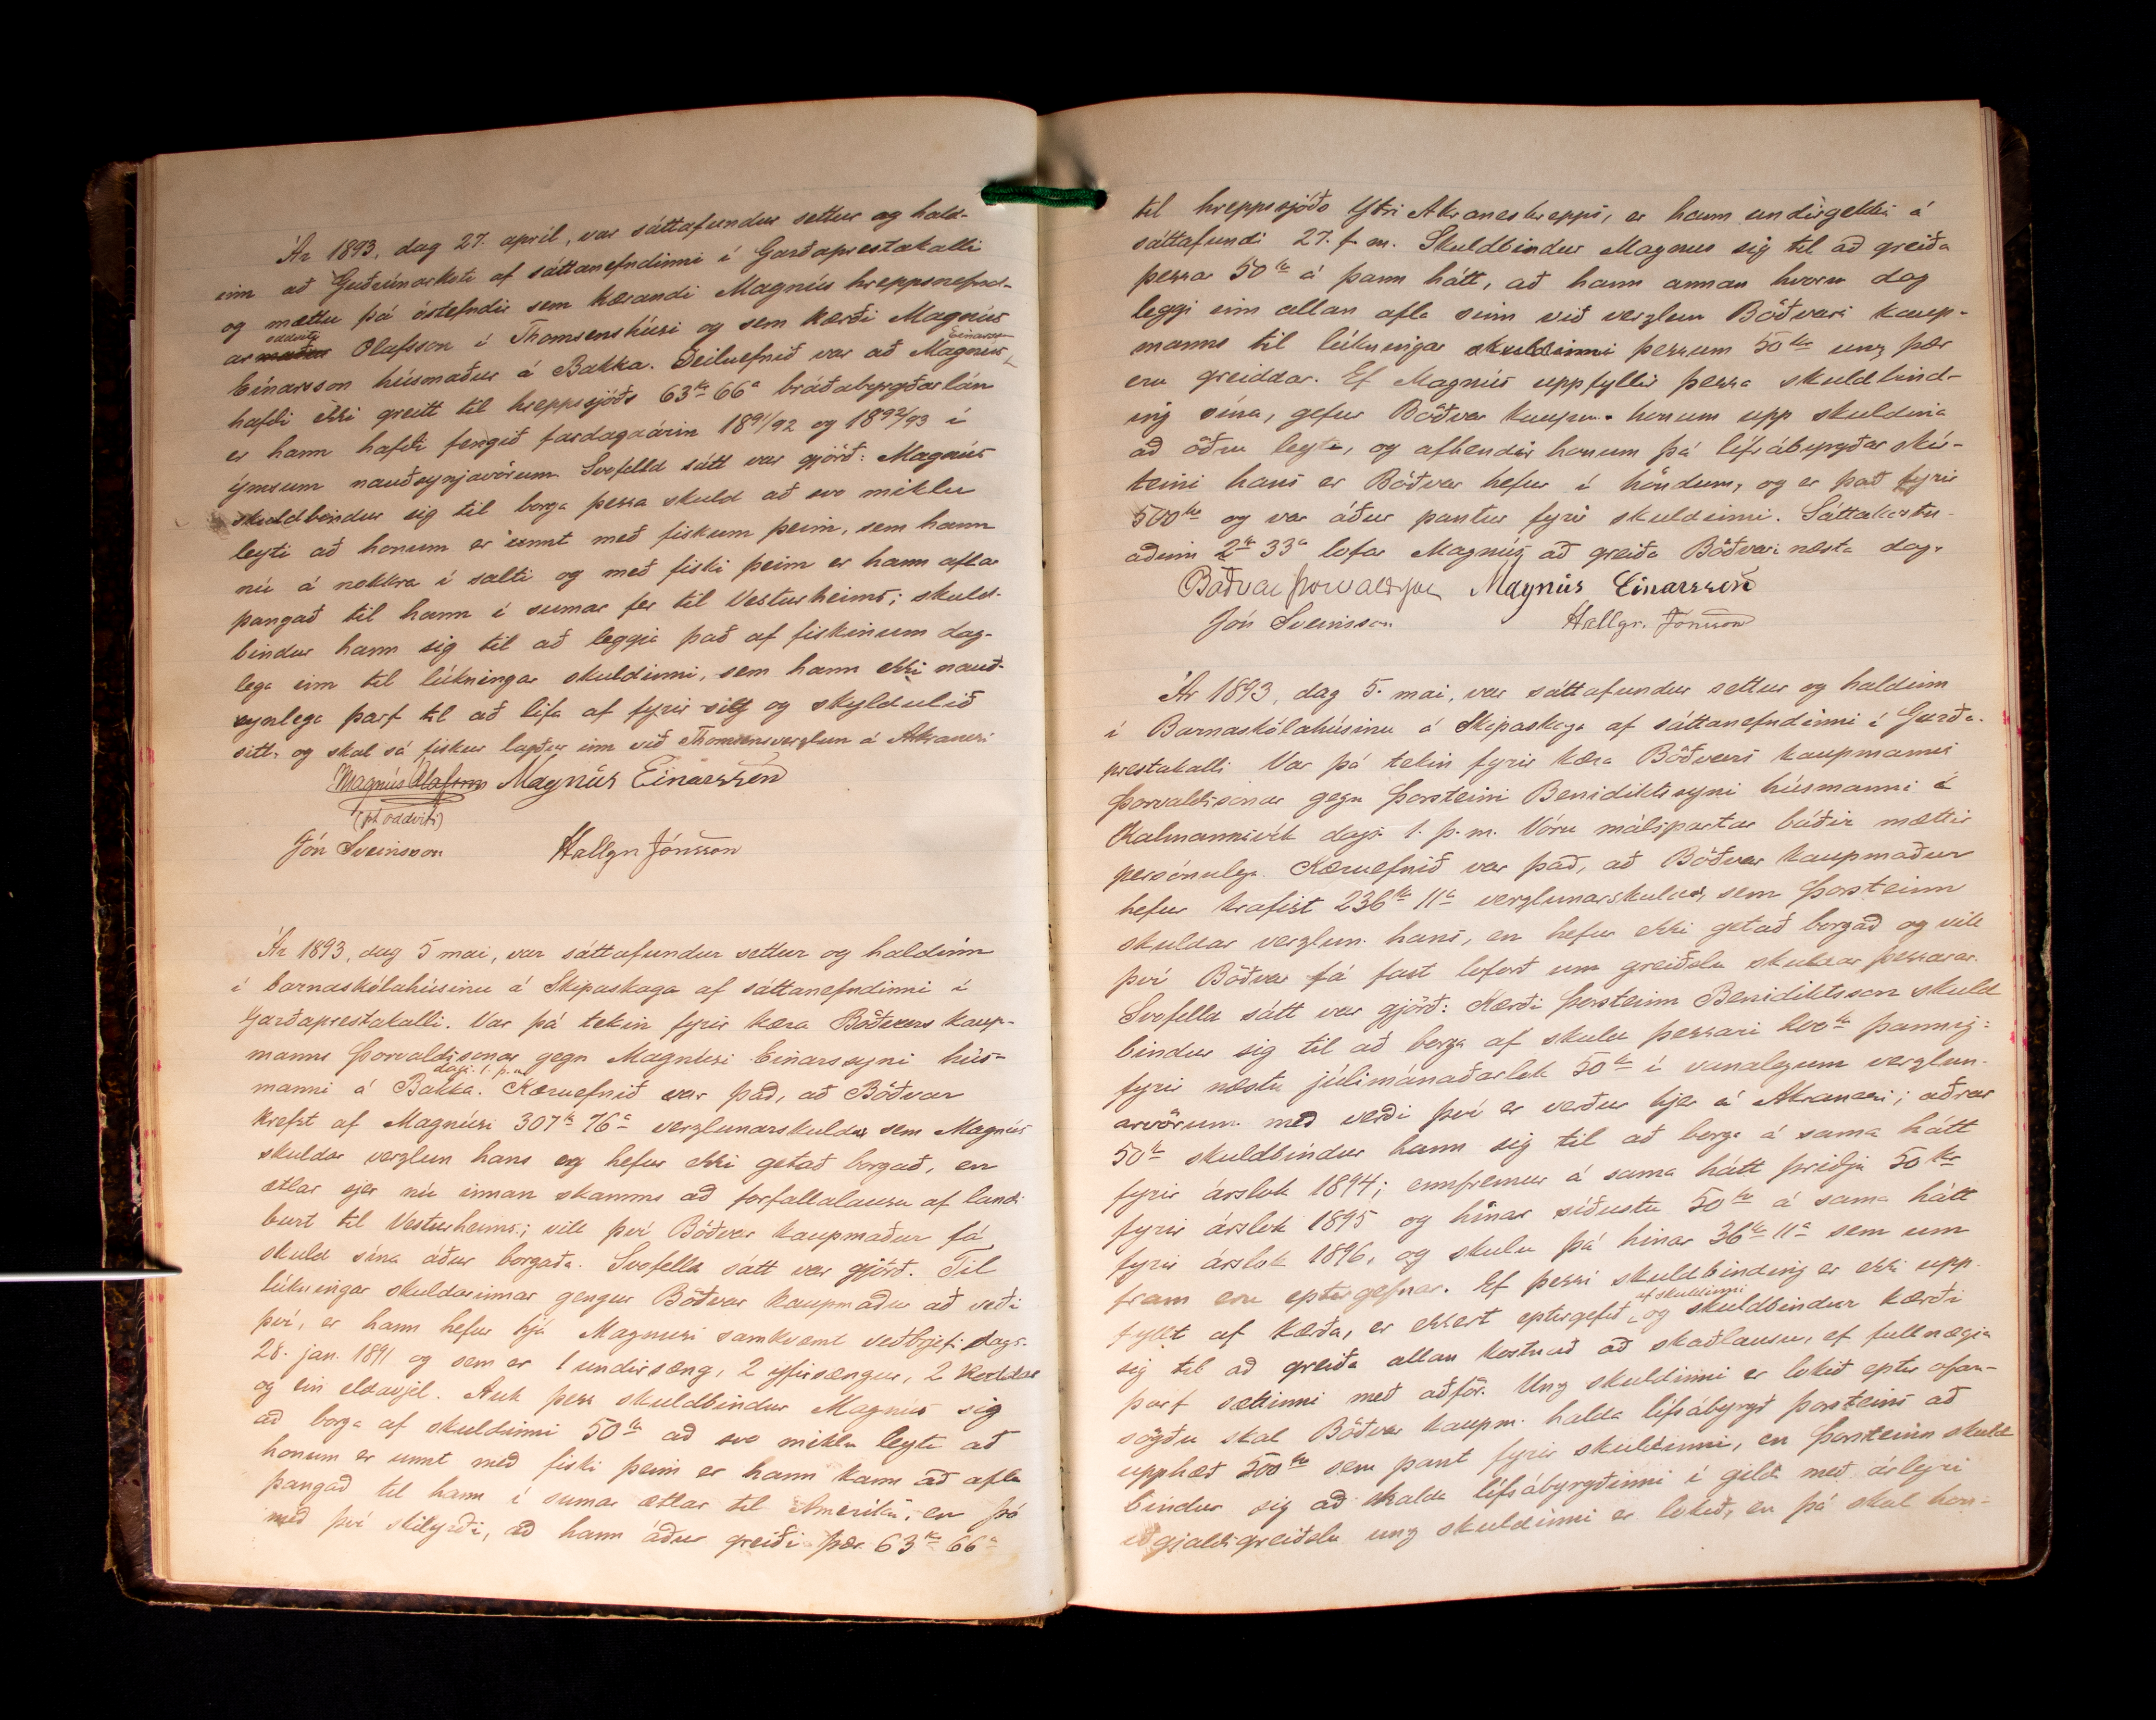 Ár 1893, dag 27. apríl, var sáttafundur settur og hald-
inn að Guðrúnarkoti af sáttanefndinni í Garðaprestakalli
og mættu þá óstefndir sem kærandi Magnús hreppsnefnd-
ar oddviti Olafsson í Thomsenshúsi og sem kærði Magnús
Einarsson húsmaður á Bakka. Deiluefnið var að Magnús Einarsson
hafði ekki greitt til hreppsjóðs 63 kr 66 a bráðabyrgðarlán
er hann hafði fengið fardagaárin 1891/92 og 1892/93 í
ýmsum nauðsynjavörum. Svofelld sátt var gjörð: Magnús
skuldbindur sig til borga þessa skuld að svo miklu
leyti að honum er unnt með fiskum þeim, sem hann
nú á nokkra í salti og með fiski þeim er hann aflar
þangað til hann í sumar fer til Vesturheims; skuld-
bindur hann sig til að leggja það af fiskinum dag-
lega inn til lúkningar skuldinni, sem hann ekki nauð-
synlega þarf til að lifa af fyrir sig og skyldulið
sitt, og skal sá fiskur lagður inn við Thomsensverzlun á Akranesi
Magnús Olafsson Magnús Einarssón
(pt oddviti)
Jón Sveinsson Hallgr Jónsson
Ár 1893, dag 5 mai, var sáttafundur settur og haldinn
í barnaskólahúsinu á Skipaskaga af sáttanefndinni í
Garðaprestakalli. Var þá tekin fyrir kæra Böðvars kaup-
manns Þorvaldssonar gegn Magnúsi Einarssyni hús-
manni á Bakka. dags. 1. þ. m. Kæruefnið var það, að Böðvar
krefst af Magnúsi 307 kr 76 a verzlunarskuldar sem Magnús
skuldar verzlun hans og hefur ekki getað borgað, en
ætlar sjer nú innan skamms að forfallalausu af landi
burt til Vesturheims; vill því Böðvar kaupmaður fá
skuld sína áður borgaða. Svofelld sátt var gjörð. Til
lúkningar skuldarinnar gengur Böðvar kaupmaður að veði
því, er hann hefur hjá Magnúsi samkvæmt veðbrjefi dags.
28. jan. 1891 og sem er 1 undirsæng, 2 yfirsængur, 2 koddar
og ein eldavjel. Auk þess skuldbindur Magnús sig
að borga af skuldinni 50 kr að svo miklu leyti að
honum er unnt með fiski þeim er hann kann að afla
þangað til hann í sumar ætlar til Ameríku, en þó
með því skilyrði, að hann áður greiði þær 63 kr 66 a
til hreppssjóðs Ytri Akraneshrepps, er hann undirgekkst á
sáttafundi 27. f. m. Skuldbindur Magnus sig til að greiða
þessar 50 kr á þann hátt, að hann annan hvorn dag
leggi inn allan afla sinn við verzlun Böðvars kaup-
manns til lúkningar skuldinni þessum 50 kr unz þær
eru greiddar. Ef Magnús uppfyllir þessa skuldbind-
ing sína, gefur Böðvar kaupm. honum upp skuldina
að öðru leyti, og afhendir honum þá lífsábyrgðar skír-
teini hans er Böðvar hefur í höndum, og er það fyrir
500 kr og var áður pantur fyrir skuldinni. Sáttakostn-
aðinn 2 kr 33 a lofar Magnús að greiða Böðvari næsta dag.
Böðvar Þorvaldsson Magnús Einarsson
Jón Sveinsson Hallgr. Jónsson
Ár 1893, dag 5. mai, var sáttafundur settur og haldinn
í Barnaskólahúsinu á Skipaskaga af sáttanefndinni í Garða-
prestakalli Var þá tekin fyrir kæra Böðvars kaupmanns
Þorvaldssonar gegn Þorsteini Benidiktssyni húsmanni á
Kalmannsvík dags. 1. þ. m. Vóru málspartar báðir mættir
persónulega. Kæruefnið var það, að Böðvar kaupmaður
hefur krafist 236 kr 11 a verzlunarskuldar, sem Þorsteinn
skuldar verzlun hans, en hefur ekki getað borgað og vill
því Böðvar fá fast loforð um greiðslu skuldar þessarar.
Svofelld sátt var gjörð: Kærði Þorsteinn Benidiktsson skuld
bindur sig til að borga af skuld þessari 200 kr þannig:
fyrir næstu júlimánaðarlok 50 kr í vanalegum verzlun-
arvörum með verði því er verður hjer á Akranesi; aðrar
50 kr skuldbindur hann sig til að borga á sama hátt
fyrir árslok 1894; ennfremur á sama hátt þriðju 50 kr
fyrir árslok 1895 og hinar síðustu 50 kr á sama hátt
fyrir árslok 1896, og skulu þá hinar 36 kr 11 a sem um
fram eru eptirgefnar. Ef þessi skuldbinding er ekki upp-
fyllt af kærða, er ekkert eptirgefið af skuldinni og skuldbindur kærði
sig til að greiða allan kostnað að skaðlausu, ef fullnægja
þarf sættinni með aðför. Unz skuldinni er lokið eptir ofan-
sögðu skal Böðvar kaupm. halda lífsábyrgð Þorsteins að
upphæð 500 kr sem pant fyrir skuldinni, en Þorsteinn skuld
bindur sig að halda lífsábyrgðinni í gildi með árlegri
iðgjaldsgreiðslu unz skuldinni er lokið, en þá skal hon-